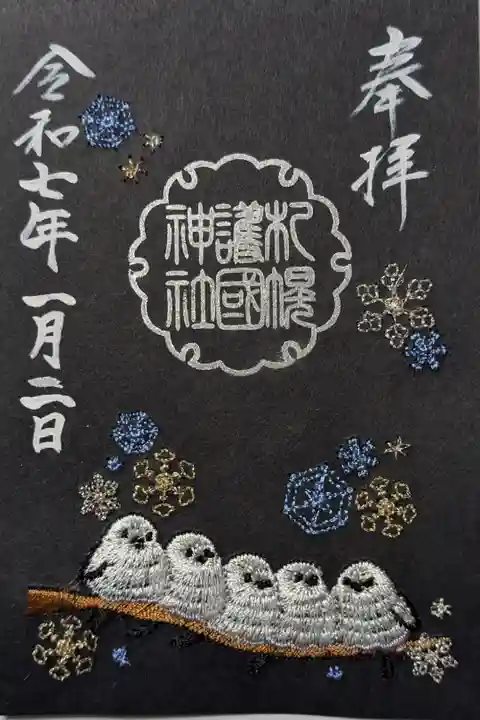 奉拝
札幌
護國
神社
令和七年一月二日